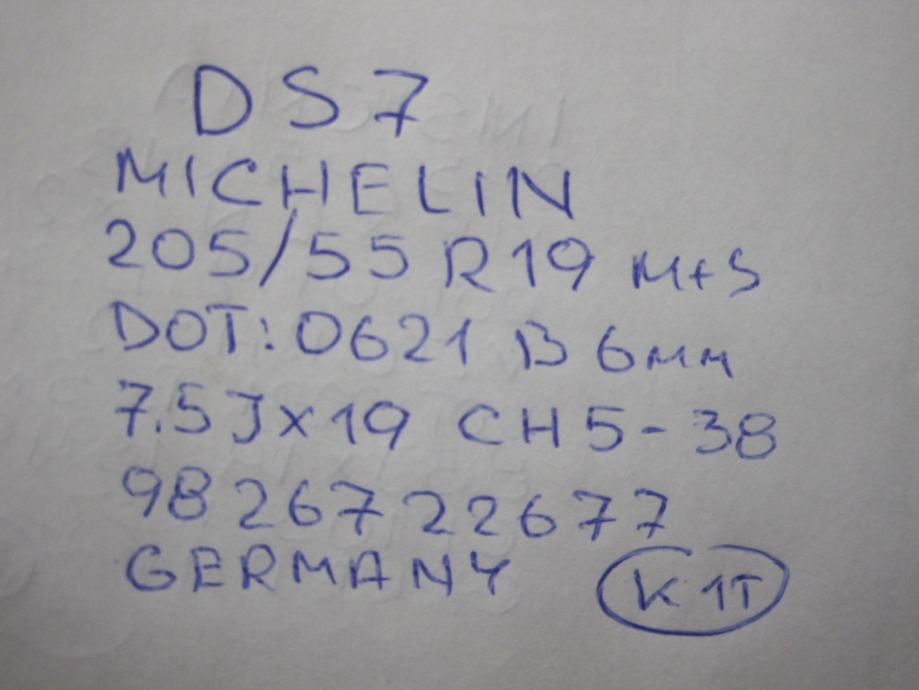 DS7
MICHELIN
205/55 R19 M+S
DOT: 0621 B 6мм
7.5Jx19 CH5-38
98 267 22677
GERMANY K1T